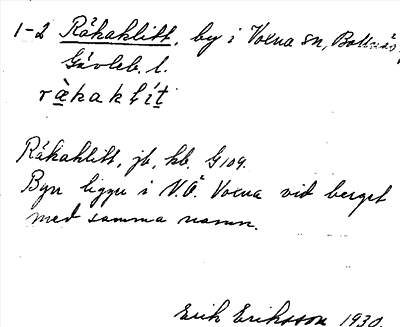 1-2 Råkaklitt, by i Voxna sn, Bollnäs,
Gävleb. l.
Råkaklitt, jb, kb. G109.
Byn ligger i V.Ö. Voxna vid berget
med samma namn.
Erik Eriksson 1930.